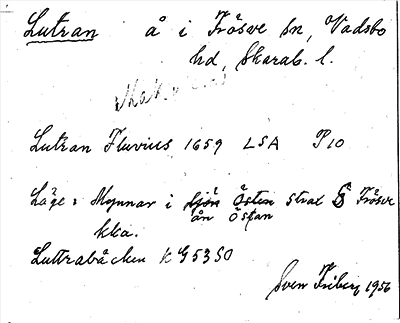 Lutran å i Frösve sn, Vadsbo
hd, Skarab. l.
Lutran Fluvius 1659 LSA P10
Läge: Mynnar i sjön Östen strax S Frösve
ån Östan
kka.
Luttrabäcken k G5350
Sven Friberg 1956